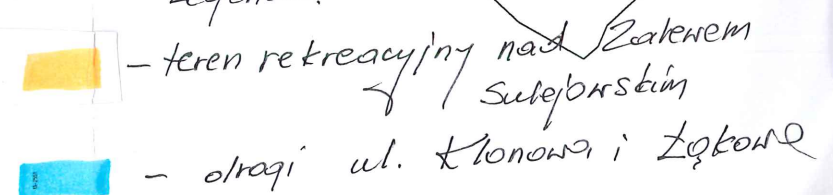 - teren rekreacyjny nad Zalewem
Sulejowskim
- drogi ul. Klonowa i Łąkowa